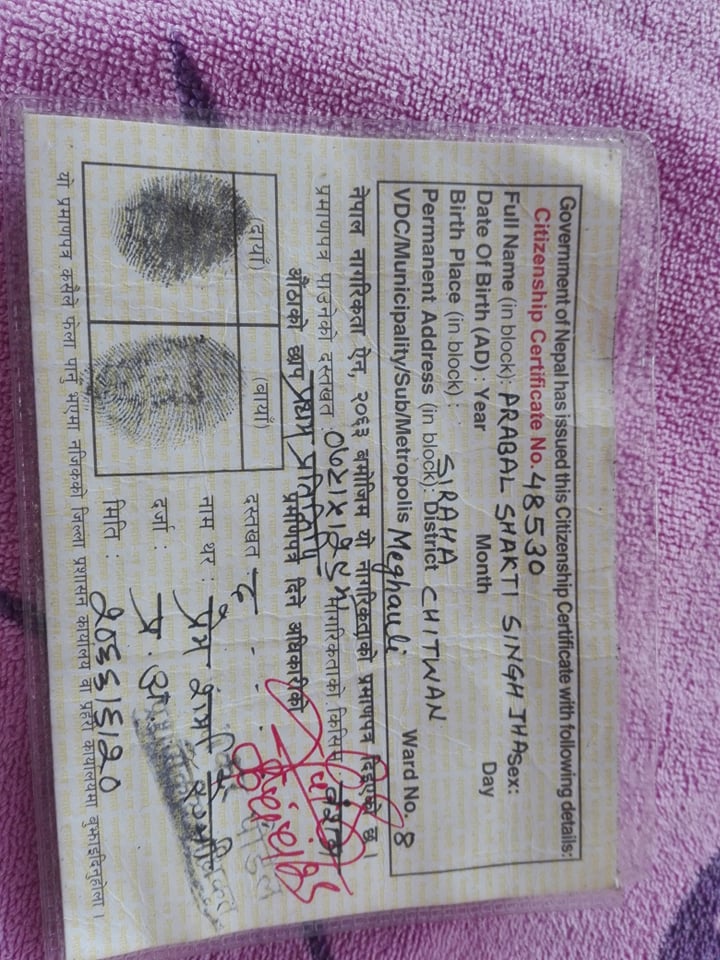 Government of Nepal has issued this Citizenship Certificate with following details:
Citizenship Certificate No. 48530
Full Name (in block): PRABAL SHAKTI SINGH THA Sex:
Date Of Birth (AD) : Year Month Day
Birth Place (in block) : SIRAHA
Permanent Address (in block): District CHITWAN
VDC/Municipality/Sub/Metropolis Meghauli Ward No. 8
नेपाल नागरिकता ऐन, २०६३ बमोजिम यो नागरिकताको प्रमाणपत्र दिइएको छ ।
प्रमाणपत्र पाउनेको दस्तखत : नागरिकताको किसिम वंशज
औंठाको छाप प्रथम प्रतिलिपि प्रमाणपत्र दिने अधिकारीको
(दायाँ) (बायाँ)
दस्तखत :
नाम थर : प्रेम
दर्जा : प्र.
मिति : २०६६।६।२०
यो प्रमाणपत्र कसैले फेला पार्नु भएमा नजिकको जिल्ला प्रशासन कार्यालय वा प्रहरी कार्यालयमा बुझाईदिनुहोला ।